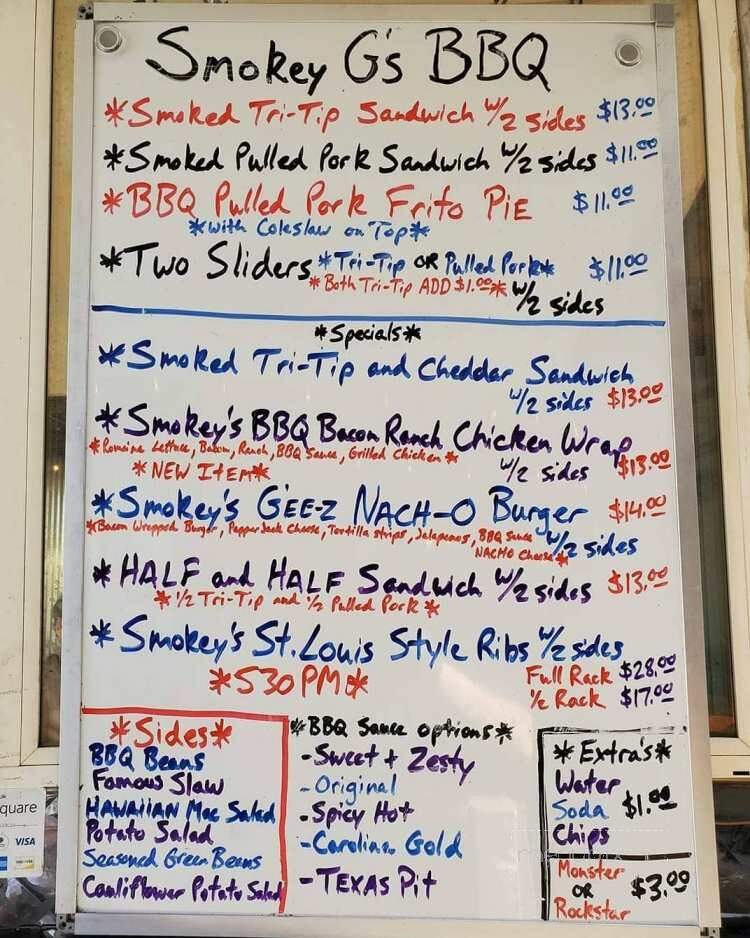 Smokey G's BBQ
*Smoked Tri-Tip Sandwich w/2 sides $13.00
*Smoked Pulled Pork Sandwich w/2 sides $11.00
*BBQ Pulled Pork Frito PiE $11.00
*with Coleslaw on Top*
*Two Sliders *Tri-Tip OR Pulled Pork* $11.00
*Both Tri-Tip ADD $1.00* w/2 sides
*Specials*
*Smoked Tri-Tip and Cheddar Sandwich
w/2 sides $13.00
*Smokey's BBQ Bacon Ranch Chicken Wrap
*Romaine Lettuce, Bacon, Ranch, BBQ Sauce, Grilled Chicken* w/2 sides $13.00
*NEW ITEM*
*Smokey's GEE-Z NACH-O Burger $14.00
*Bacon Wrapped Burger, PepperJack Cheese, Tortilla strips, Jalapenos, BBQ Sauce w/2 sides
NACHO Cheese*
*HALF and HALF Sandwich w/2 sides $13.00
*1/2 Tri-Tip and 1/2 Pulled Pork*
*Smokey's St. Louis Style Ribs w/2 sides
*530PM* Full Rack $28.00
1/2 Rack $17.00
*Sides*
BBQ Beans
Famous Slaw
HAWAIIAN Mac Salad
Potato Salad
Seasoned Green Beans
Cauliflower Potato Salad
*BBQ Sauce options*
-Sweet + Zesty
-Original
-Spicy Hot
-Carolina Gold
-TEXAS Pit
*Extra's*
Water
Soda $1.00
Chips
Monster
OR $3.00
Rockstar
quare
VISA